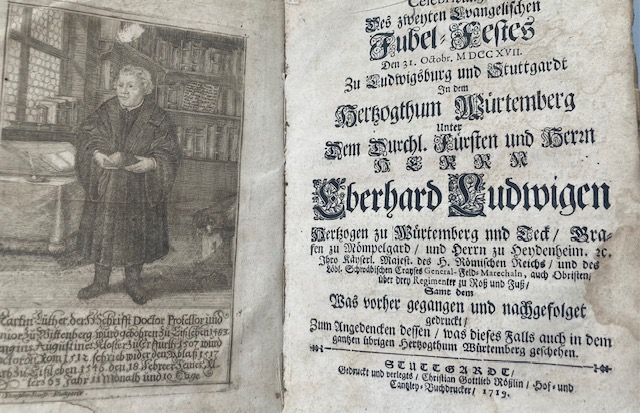 Martin Luther, der H. Schrifft Doctor Professor und
zu Wittenberg, wurd gebohren zu Eisleben 1483
ging ins Augustiner Kloster zu Erfurth 1507 wird
Doctor zu Rom 1512. schrieb wider den Ablaß 1517
zu Eisleben 1546. den 18. Febr.
63 Jahr 11 Monath und 10 Tage
Des zweyten Evangelischen
Jubel-Festes
Den 31. Octobr. MDCCXVII.
Zu Ludwigsburg und Stuttgardt
In dem
Hertzogthum Würtemberg
Unter
Dem Durchl. Fürsten und Herrn
HERRN
Eberhard Ludwigen
Hertzogen zu Würtemberg und Teck/ Gra-
fen zu Mömpelgard/ und Herrn zu Heydenheim. ꝛc.
Ihro Käyserl. Majest. des H. Römischen Reichs/ und des
Löbl. Schwäbischen Crayses General-Feld-Marechaln, auch Obristen/
über drey Regimenter zu Roß und Fuß/
Samt dem
Was vorher gegangen und nachgefolget
gedruckt/
Zum Angedencken dessen/ was dieses Falls auch in dem
gantzen übrigen Hertzogthum Würtemberg geschehen.
STUTTGARDT,
Gedruckt und verlegts/ Christian Gottlieb Rößlin/ Hof- und
Cantzley-Buchdrucker/ 1719.